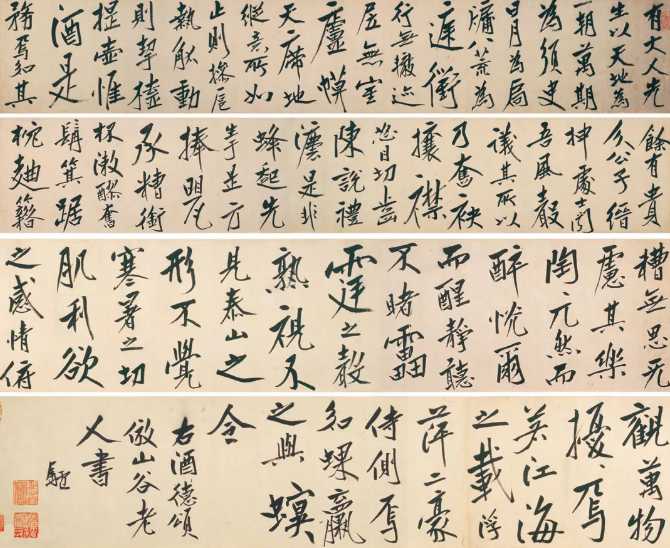 有大人先
生以天地為
一朝萬期
為須臾
日月為扃
牖八荒為
庭衢
行無轍迹
居無室
廬幙
天席地
縱意所如
止則操巵
執觚動
則挈榼
提壺惟
酒是
務焉知其
餘有貴
介公子縉
紳處士聞
吾風聲
議其所以
乃奮袂
攘襟
怒目切齒
陳說禮
灋是非
蜂起先
生於是方
捧甖
承糟銜
杯漱醪奮
髯箕踞
枕麯藉
糟無思无
慮其樂
陶〻兀然而
醉恍爾
而醒靜聽
不睹雷
霆之聲
熟視不
見泰山之
形不覺
寒暑之切
肌利欲
之感情俯
觀萬物
擾〻焉
若江海
之載浮
萍二豪
侍側焉
如蜾蠃
之與螟
令
右酒德頌
倣山谷老
人書